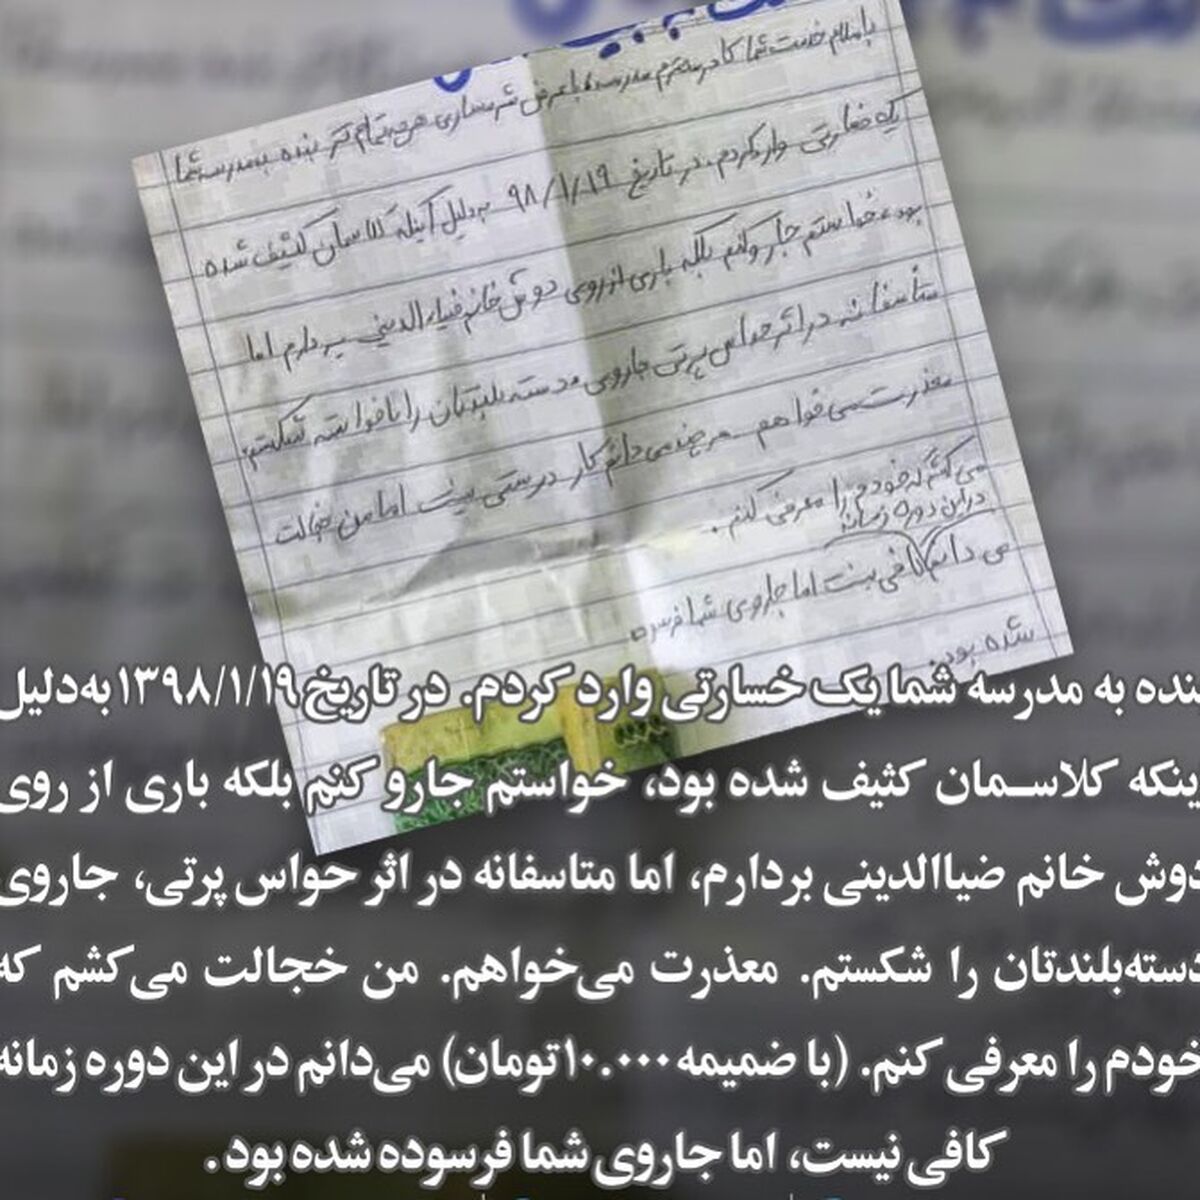 با سلام خدمت شما کادر محترم مدرسه، با عرض شرمساری هرچه تمام تر بنده به مدرسه شما
یک خسارتی وارد کردم. در تاریخ ۹۸/۱/۱۹ به دلیل اینکه کلاسمان کثیف شده
بود، خواستم جارو کنم بلکه باری از روی دوش خانم ضیاءالدینی بردارم اما
متاسفانه در اثر حواس پرتی جاروی دسته بلندتان را ناخواسته شکستم.
معذرت می خواهم هر چند می دانم کار درستی نیست اما من خجالت
می کشم که خودم را معرفی کنم.
در این دوره زمانه
می دانم کافی نیست اما جاروی شما فرسوده
شده بود.
بنده به مدرسه شما یک خسارتی وارد کردم. در تاریخ ۱۳۹۸/۱/۱۹ به‌دلیل
اینکه کلاسمان کثیف شده بود، خواستم جارو کنم بلکه باری از روی
دوش خانم ضیاالدینی بردارم، اما متاسفانه در اثر حواس پرتی، جاروی
دسته‌بلندتان را شکستم. معذرت می‌خواهم. من خجالت می‌کشم که
خودم را معرفی کنم. (با ضمیمه ۱۰.۰۰۰تومان) می‌دانم در این دوره زمانه
کافی نیست، اما جاروی شما فرسوده شده بود.